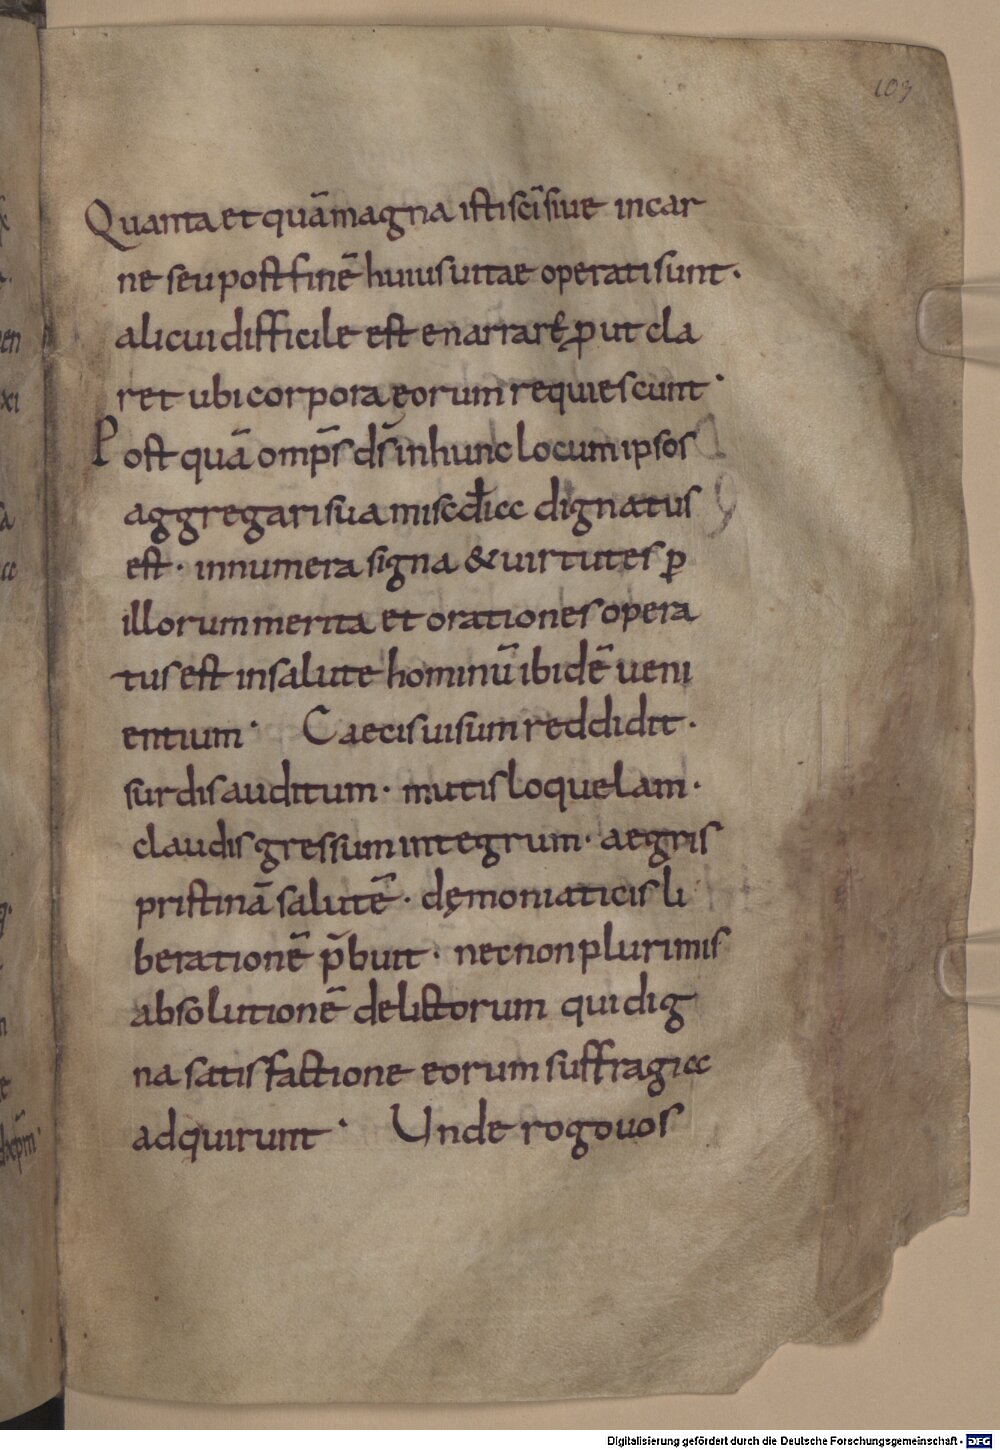 103
Quanta et quā magna isti sc̄i siue incar
ne seu post finē huius uitae operati sunt·
alicui difficile est enarrare p̄ut cla
ret ubi corpora eorum requiescunt·
Post quā omp̄s ds̄ in hunc locum ipsos
aggregari sua misc̄dia dignatus
est· innumera signa & uirtutes p̲
illorum merita et orationes opera
tus est in salute hominū ibidē ueni
entium· Caecis uisum reddidit·
surdis auditum· mutis loquelam·
claudis gressum integrum· aegris
pristinā salutē· dęmoniaticis li
berationē p̄buit· necnon plurimis
absolutionē delictorum qui dig
na satisfactione eorum suffragia
adquirunt· Unde rogo uos
Digitalisierung gefördert durch die Deutsche Forschungsgemeinschaft - DFG